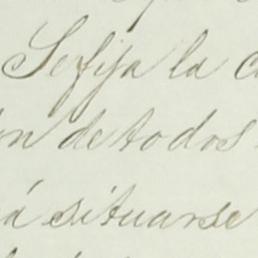 Se fija la
ón de todos
á situarse